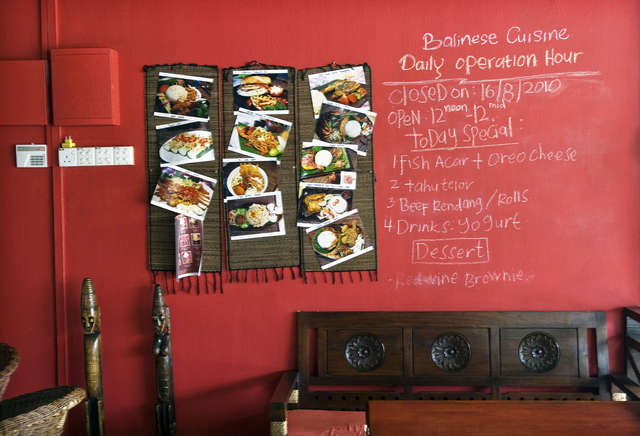 Balinese Cuisine
Daily Operation Hour
Closed on: 16/8/2010
Open: 12 noon - 12 mid
Today Special:
1 Fish Acar + Oreo Cheese
2 tahu telor
3 Beef Rendang / Rolls
4 Drinks: Yogurt
Dessert
- Redwine Brownie.